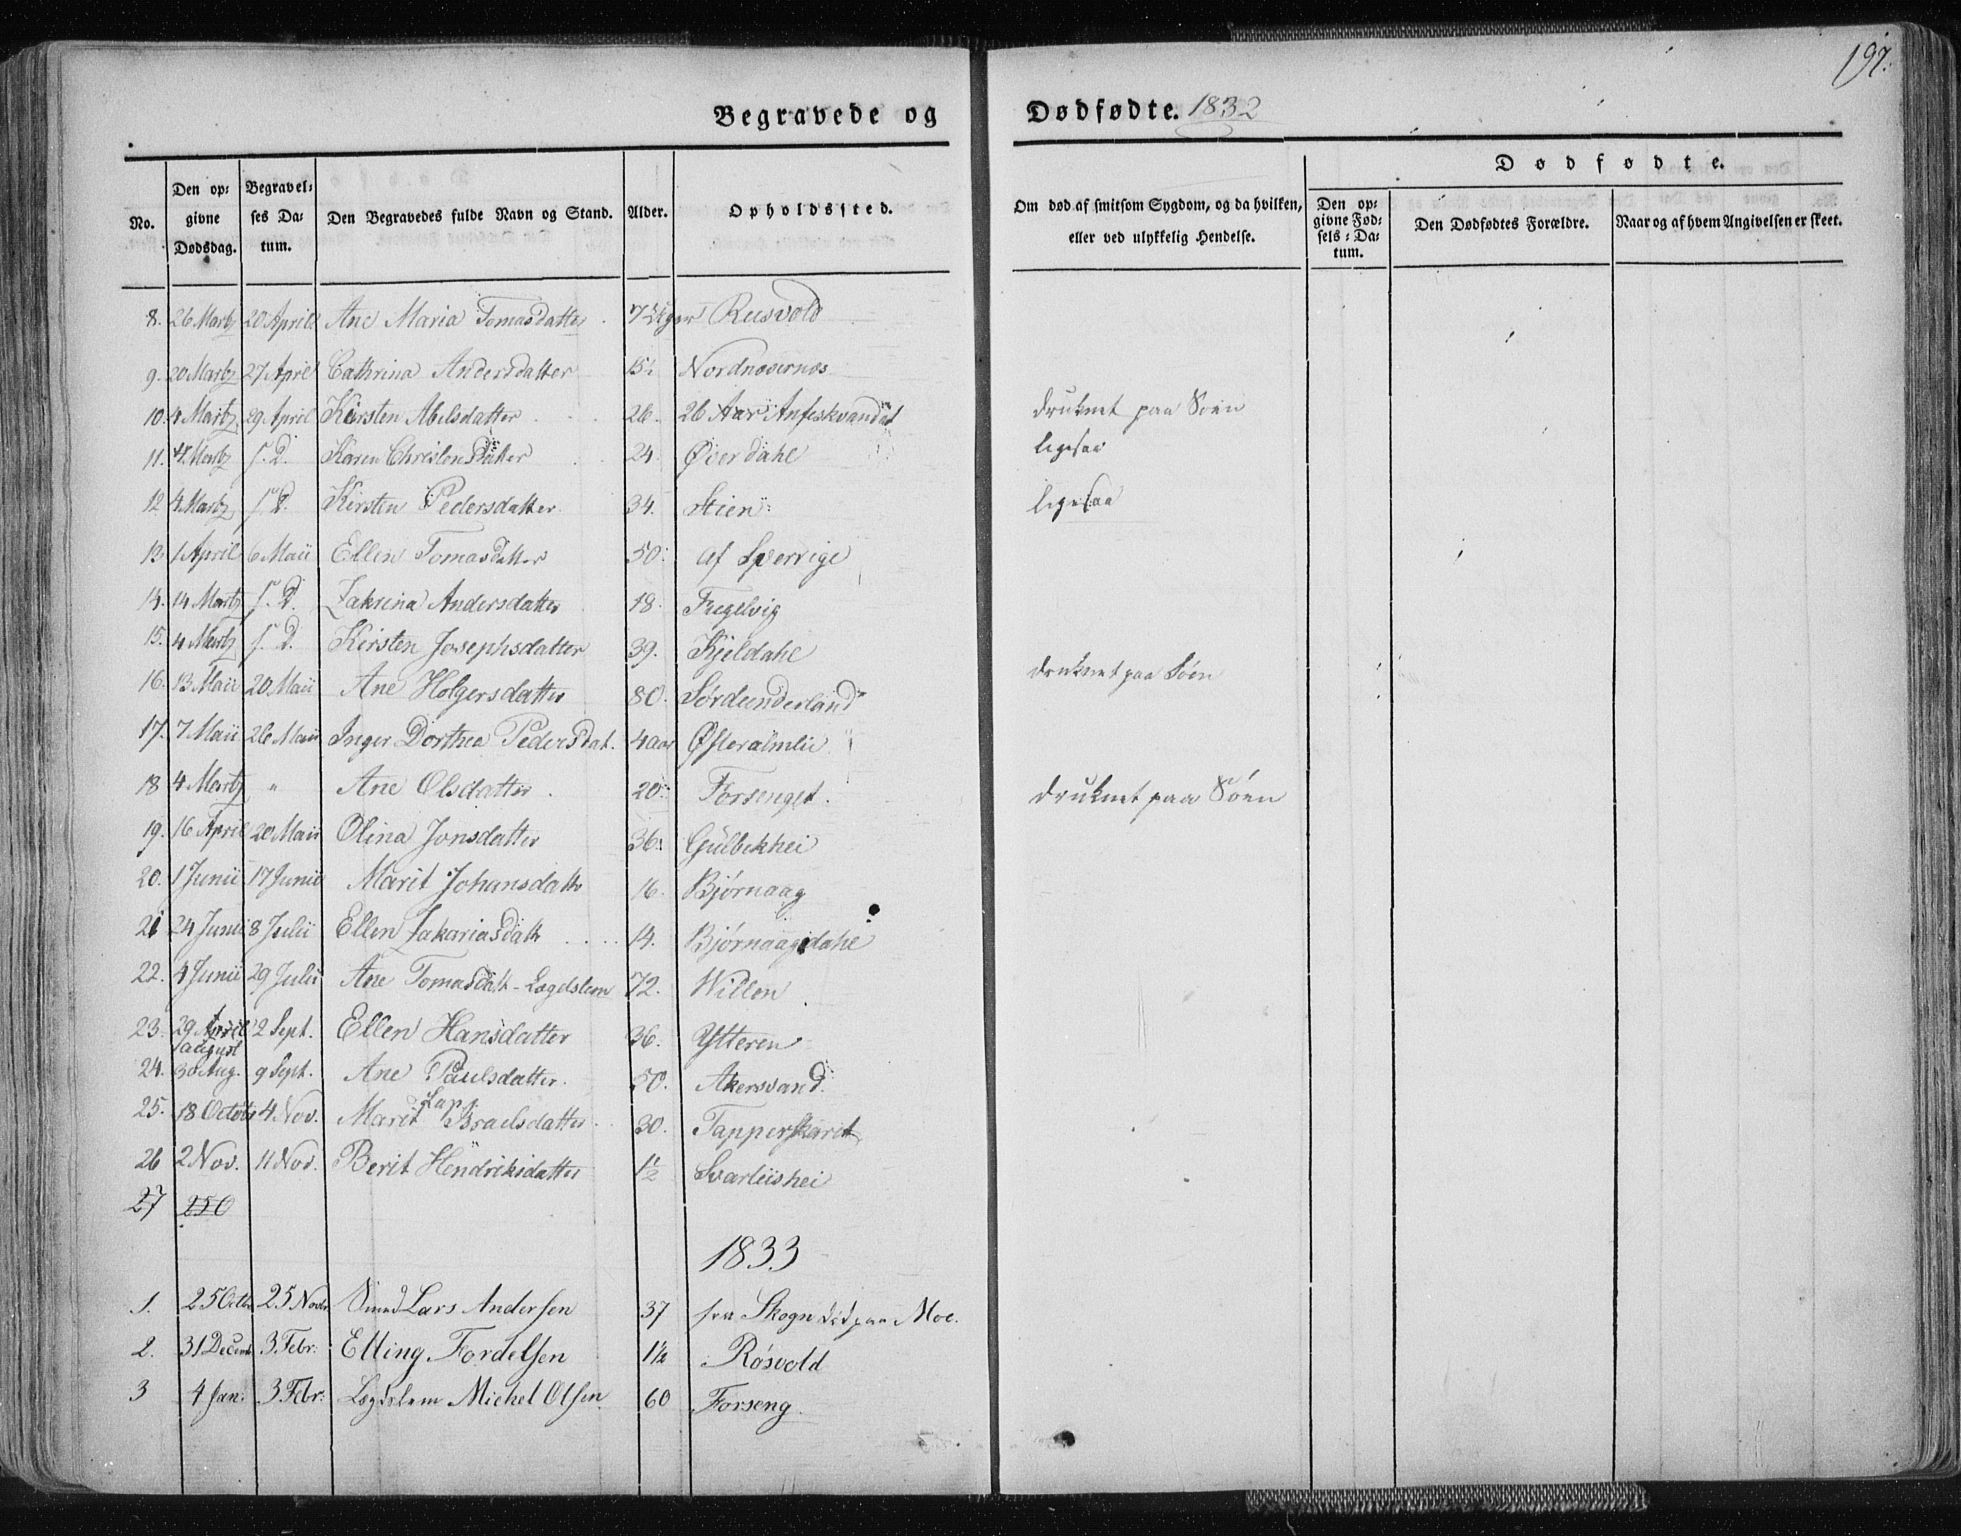 197.
Begravede og Dødfødte. 1832
No.
Den opgivne Dødsdag.
Begravelses Datum.
Den Begravedes fulde Navn og Stand.
Alder.
Opholdssted.
Om død af smitsom Sygdom, og da hvilken, eller ved ulykkelig Hendelse.
Dødfødte.
Den opgivne Fødsels-Datum.
Den Dødfødtes Forældre.
Naar og af hvem Angivelsen er skeet.
8. 26 Martz 20 April Ane Maria Tomasdatter 7 Uger Rusvold
9. 20 Martz 27 April Cathrina Andersdatter Nordnæsernæs
10. 4 Martz 29 April Kirsten Abelsdatter 26. 26 Aar druknet paa Søen
11. 4. Martz s. D. Karen Christensdatter 24. Øverdahl ligesaa
12 4 Martz s. D. Kirsten Pedersdatter 34. Stien ligesaa
13. 1 April 6 Maii Ellen Tomasdatter 50. af Sverrige
14. 14 Martz s. D. Zakrina Andersdatter 18. Fugelvig
15. 4 Martz s. D. Kirsten Josephsdatter 39. Kjeldahl druknet paa Søen
16. 13 Maii 20 Maii Ane Holgersdatter 80. Sørdunderland
17. 7 Maii 26 Maii Inger Dorthea Pedersdat. 4 aar Østeralmlie
18 4 Martz " Ane Olsdatter 20. Forsenget. druknet paa Søen
19. 16 April 20 Maii Olina Jonsdatter 36. Gulbekhei
20. 1 Junii 17 Junii Marit Johansdatt 16. Bjørnaag
21 24 Junii 8 Julii Ellen Zakariasdatt 14. Bjørnaagdahl
22. 4 Junii 29 Julii Ane Tomasdatt - Lægdslem 72. Willen
23. 29 April august 2 Sept. Ellen Hansdatter 36. Ytteren
24. 30 Aug. 9 Sept. Ane Paulsdatter. 50. Akersvand
25. 18 Octob 4 Nov. Marit Lap. Israelsdatter 30. Tapperskaret
26 2 Nov. 11 Nov. Berit Hendriksdatter 1½ Svarliishei
27 250
1833
1. 25 Octbr 25 Novbr Smed Lars Andersen 37 fra Skogn død paa Moe.
2. 31 Decemb 3 Febr: Elling Fordelsen 1½ Røsvold
3 4 Jan: 3 Febr: Lægdslem Michel Olsen. 60 Forseng.